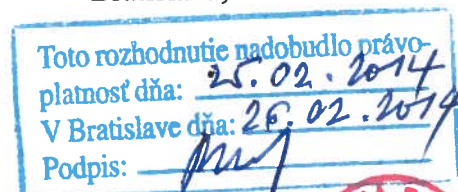 Toto rozhodnutie nadobudlo právo-
platnosť dňa: 25.02.2014
V Bratislave dňa: 26.02.2014
Podpis: